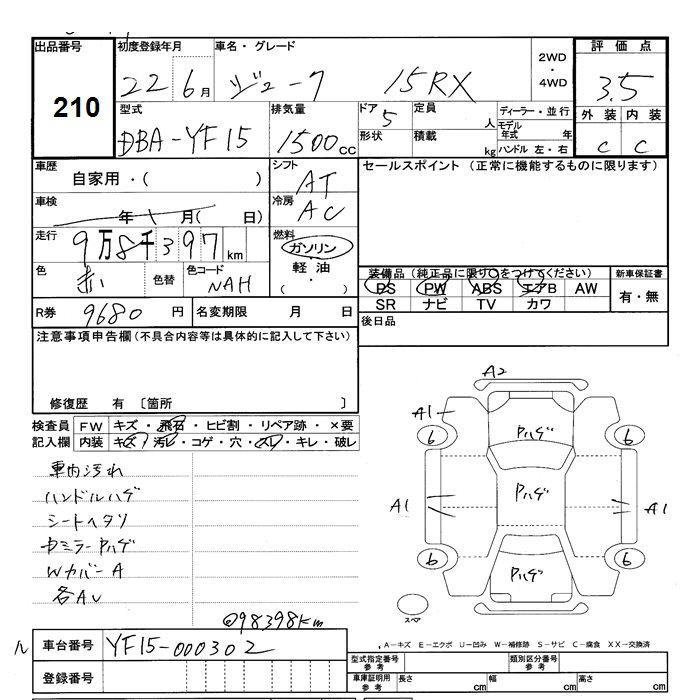 出品番号 初度登録年月 車名・グレード 2WD・4WD 評価点
210 22 6月 ジューク 15RX 3.5
型式 排気量 ドア 定員 ディーラー・並行 外装 内装
DBA-YF15 1500cc 5 人 モデル年式 年 C C
形状 積載 kg ハンドル 左・右
車歴 シフト セールスポイント (正常に機能するものに限ります)
自家用・( ) AT
車検 冷房
年 月( 日) AC
走行 燃料
9万8千397km ガソリン
色 色替 色コード 軽油
赤い NAH (・)
装備品(純正品に限り○をつけてください) 新車保証書
PS PW ABS エアB AW 有・無
SR ナビ TV カワ
R券 9680円 名変期限 月 日 後日品
注意事項申告欄(不具合内容等は具体的に記入して下さい)
修復歴 有 〔箇所 〕
検査員 FW キズ・飛石・ヒビ割・リペア跡・×要
記入欄 内装 キズ・汚レ・コゲ・穴・スレ・キレ・破レ
車内汚れ
ハンドルハゲ
シートヘタリ
カミラーPハゲ
WカバーA
各AU
@98398km
A2
A1
6 Pハゲ 6
A1 Pハゲ A1
6 Pハゲ 6
スペア
A-キズ E-エクボ U-凹み W-補修跡 S-サビ C-腐食 XX-交換済
ル 車台番号 YF15-000302
登録番号
型式指定番号 参考 類別区分番号 参考
車庫証明用 参考 長さ cm 幅 cm 高さ cm